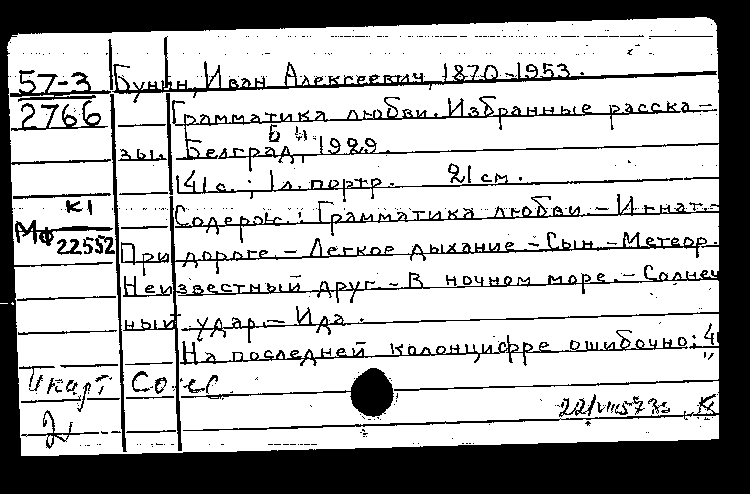 57-3 Бунин, Иван Алексеевич, 1870-1953.
2766 Грамматика любви. Избранные расска-
зы. Белград, 1929.
141 с.; 1 л. портр. 21 см.
К1 Содерж.: Грамматика любви. - Игнат. -
Мф 22552 При дороге. - Легкое дыхание - Сын. - Метеор.
Неизвестный друг. - В ночном море. - Солнеч
ный удар. - Ида.
На последней колонцифре ошибочно: 4
4 карт
2